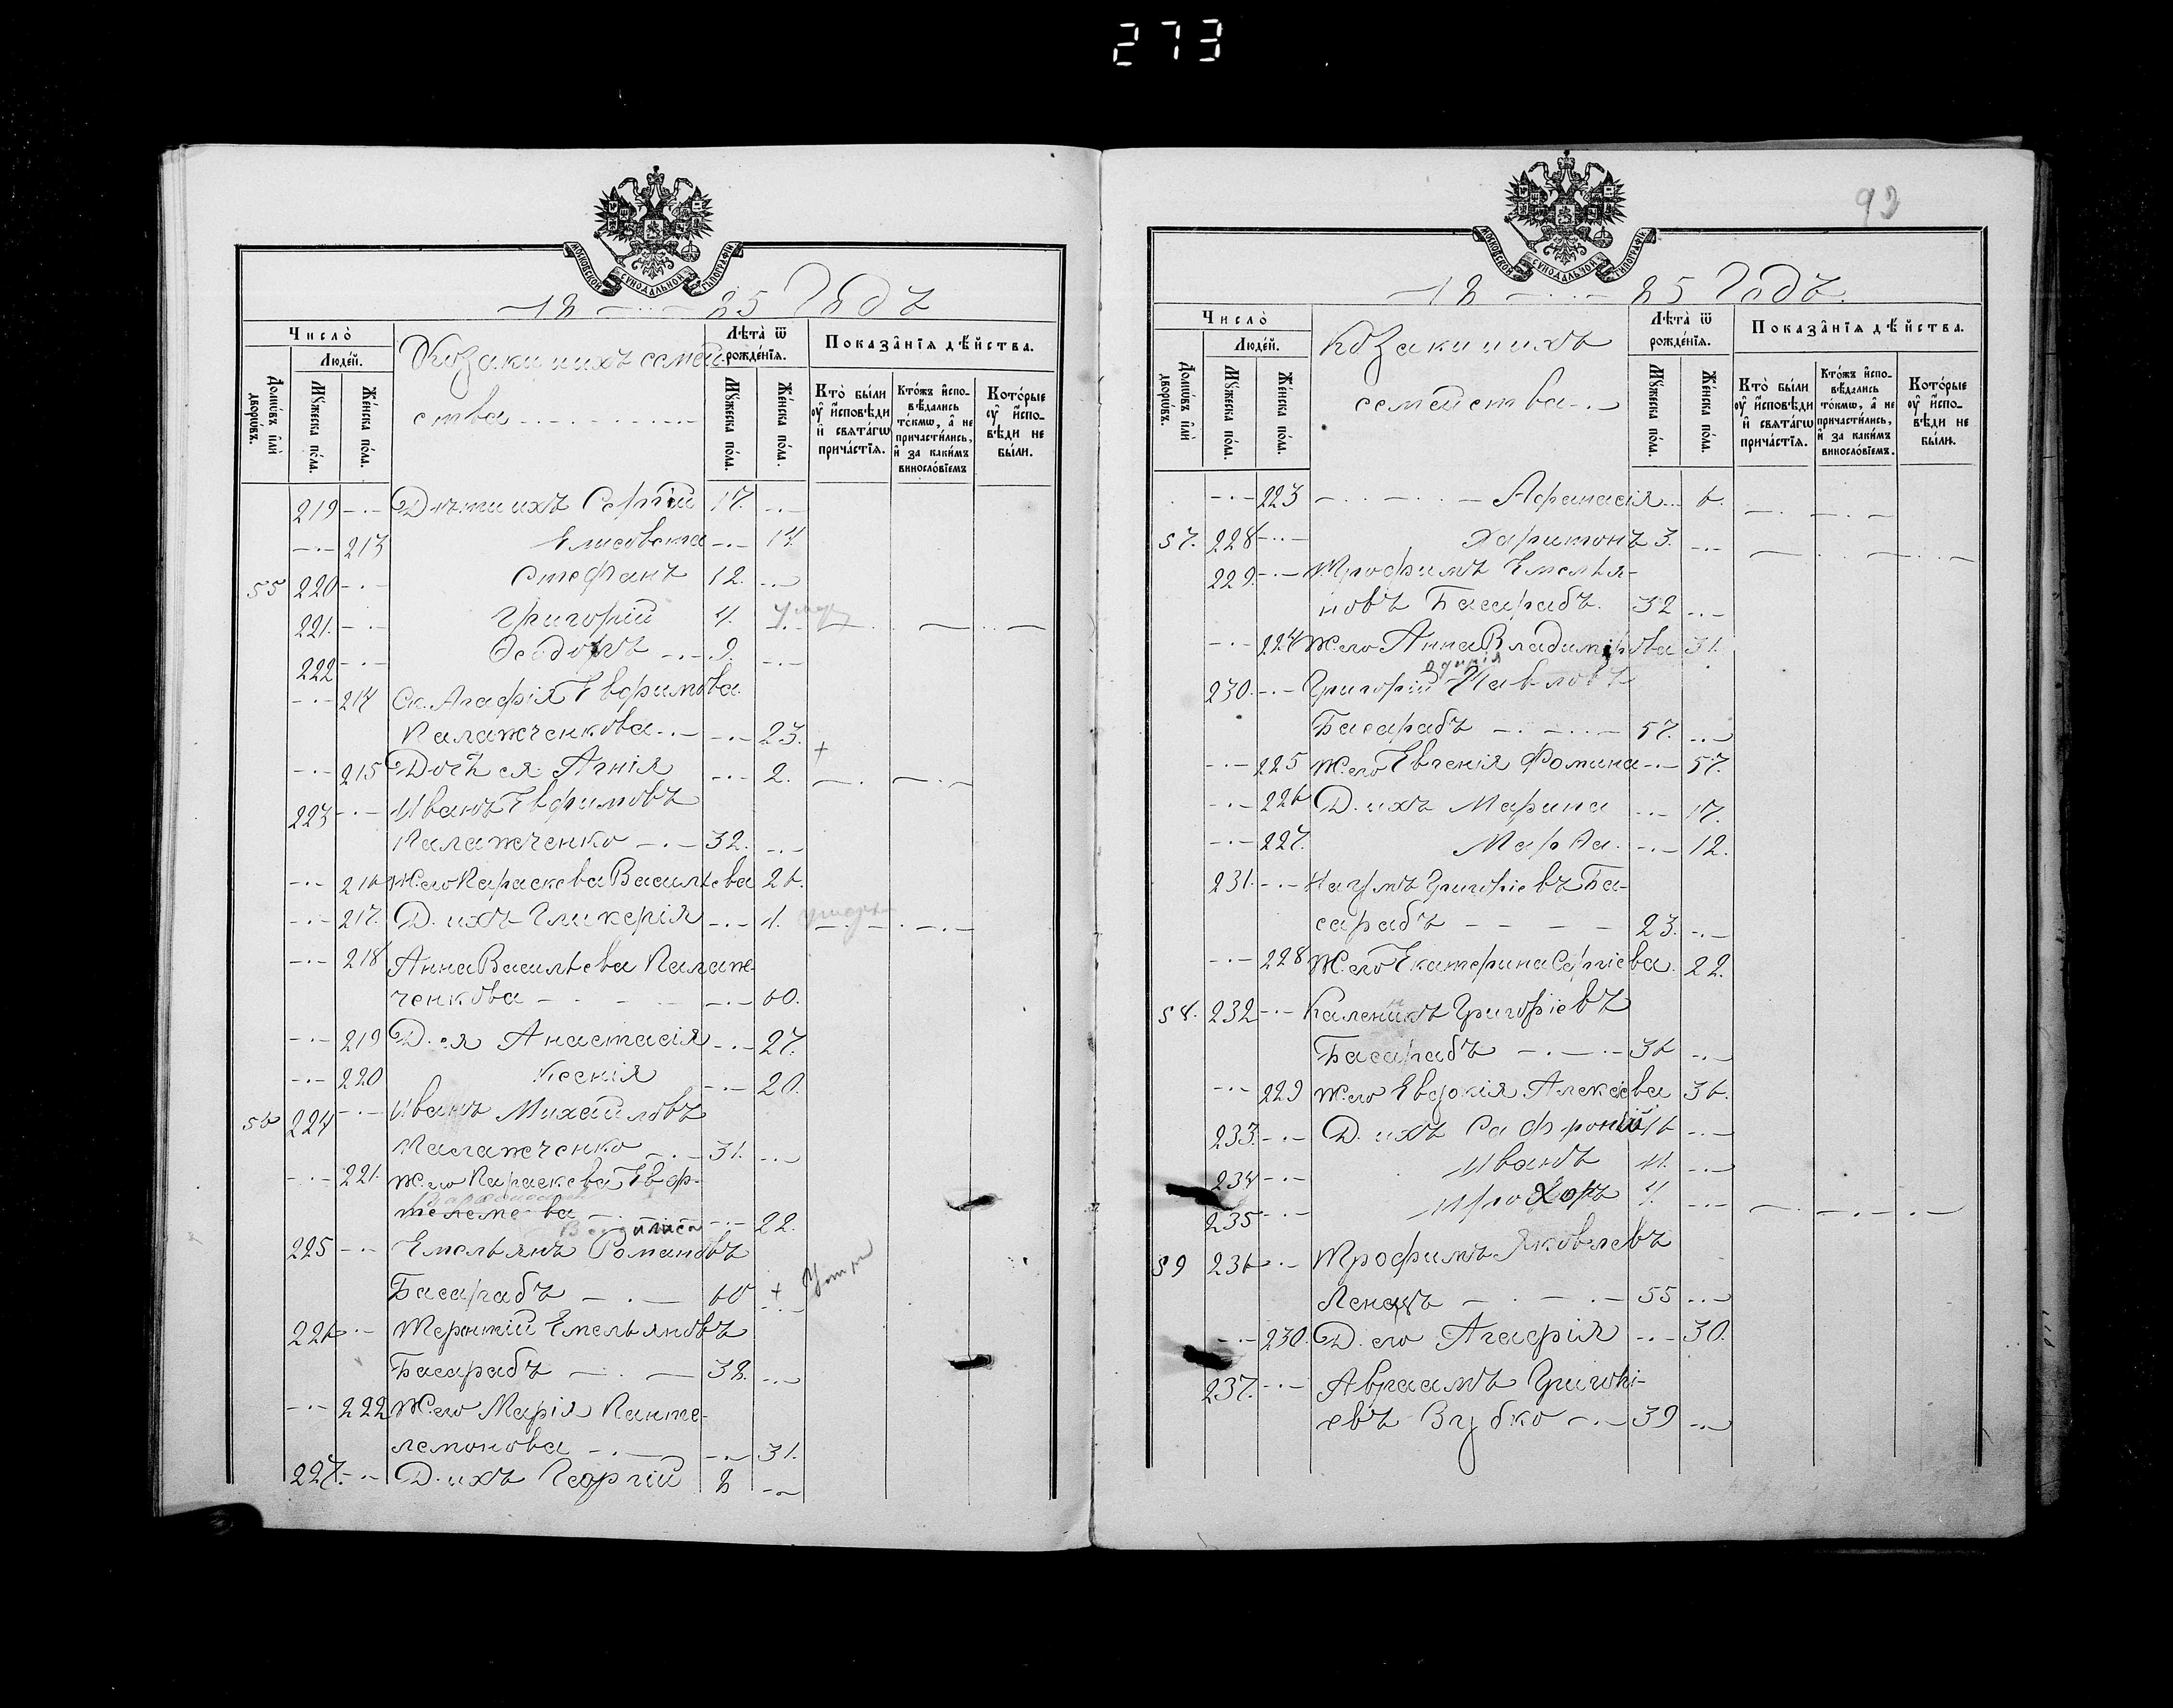 273
МОСКОВСКОЙ СУНОДАЛЬНОЙ ТѴПОГРАФІИ
18 — 85 Годъ
Число̀
Люде́й.
Домѡ́въ и҆лѝ дворѡ́въ.
Мꙋ́жеска по́ла.
Же́нска по́ла.
Козаки и ихъ семей-
ства
Лѣта̀ ѿ рожде́нїѧ.
Мꙋ́жеска по́ла.
Же́нска по́ла.
Показа̑нїѧ дѣ́йства.
Кто̀ бы́ли ᲂу҆ и҆сповѣ́ди и҆ свѧта́гѡ прича́стїѧ.
Кто́жъ и҆спо-вѣ́дались то́кмѡ, а҆ не причасти́лись, и҆ за каки́мъ винослѡ́вїемъ
Кото́рые ᲂу҆ и҆спо-вѣ́ди не бы́ли.
219 -.- Дѣти ихъ Сергій 17. -.-
-.- 213 Елисавета -.- 14
55 220 -.- Стефанъ 12. -.-
221. -.- Григорій 4. умер
222 -.- Ѳеодоръ -.- 9. -.-
-.- 214 Ск. Агафія Евфимова
Палажченкова -.- -.- 23. +
-.- 215 Дочь ея Агнія -.- 2.
223 -.- Иванъ Евфимовъ
Палажченко -.- 32. -.-
-.- 216 Ж. его Параскева Васильева 26.
-.- 217. Д. ихъ Гликерія -.- 1. умерла
-.- 218 Анна Васильева Палаж-
ченкова -.- 60.
-.- 219 Д. ея Анастасія -.- 27.
-.- 220 Ксенія -.- 20.
56 224 -.- Иванъ Михайловъ
Палажченко -.- 31. -.-
-.- 221. Ж. его Параскева Евф-
-.- 22.
225 -.- Емельянъ Романовъ
Басарабъ -.- 60 + Умер
226 -.- Терентій Емельяновъ
Басарабъ -.- 38. -.-
-.- 222 Ж. его Марія Панте-
лемонова -.- -.- 31.
227. -.- Д. ихъ Георгій 8 -.-
92
МОСКОВСКОЙ СУНОДАЛЬНОЙ ТѴПОГРАФІИ
18 -.- 85 Годъ.
Число̀
Люде́й.
Домѡ́въ и҆лѝ дворѡ́въ.
Мꙋ́жеска по́ла.
Же́нска по́ла.
Козаки и ихъ
семейства -.-
Лѣта̀ ѿ рожде́нїѧ.
Мꙋ́жеска по́ла.
Же́нска по́ла.
Показа̑нїѧ дѣ́йства.
Кто̀ бы́ли ᲂу҆ и҆сповѣ́ди и҆ свѧта́гѡ прича́стїѧ.
Кто́жъ и҆спо-вѣ́дались то́кмѡ, а҆ не причасти́лись, и҆ за каки́мъ винослѡ́вїемъ.
Кото́рые ᲂу҆ и҆спо-вѣ́ди не бы́ли.
-.- 223 -.- Афанасія 6.
57. 228 -.- Харитонъ 3. -.-
229. -.- Трофимъ Емелья-
новъ Басарабъ. 32 -.-
-.- 224 Ж. его Анна Владимірова 31.
230. -.- Григорій Павловъ
Басарабъ -.- 57. -.-
-.- 225 Ж. его Евгенія Фомина -.- 57.
-.- 226 Д. ихъ Марина -.- 17.
-.- 227. Марѳа. -.- 12.
231. -.- Наумъ Григоріевъ Ба-
сарабъ - - - - 23. -.-
-.- 228 Ж. его Екатерина Сергіева. 22.
58. 232 -.- Каленикъ Григоріевъ
Басарабъ -.- 36 -.-
-.- 229 Ж. его Евдокія Алексіева 36.
233. -.- Д. ихъ Сафроній 16 -.-
234 -.- Иванъ 11. -.-
235 -.- Прохоръ 4. -.-
59 236 -.- Трофимъ Яковлевъ
55 -.-
-.- 230. Д. его Агафія -.- 30.
237. -.- Авраамъ Григорі-
евъ Зубко -.- 39 -.-